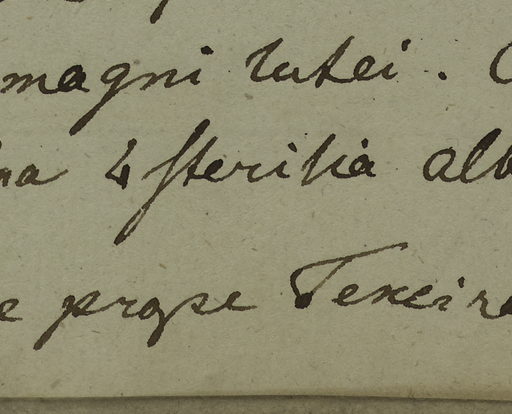 magni lutei. C
na 4 sterilia alb
e prope Texeira